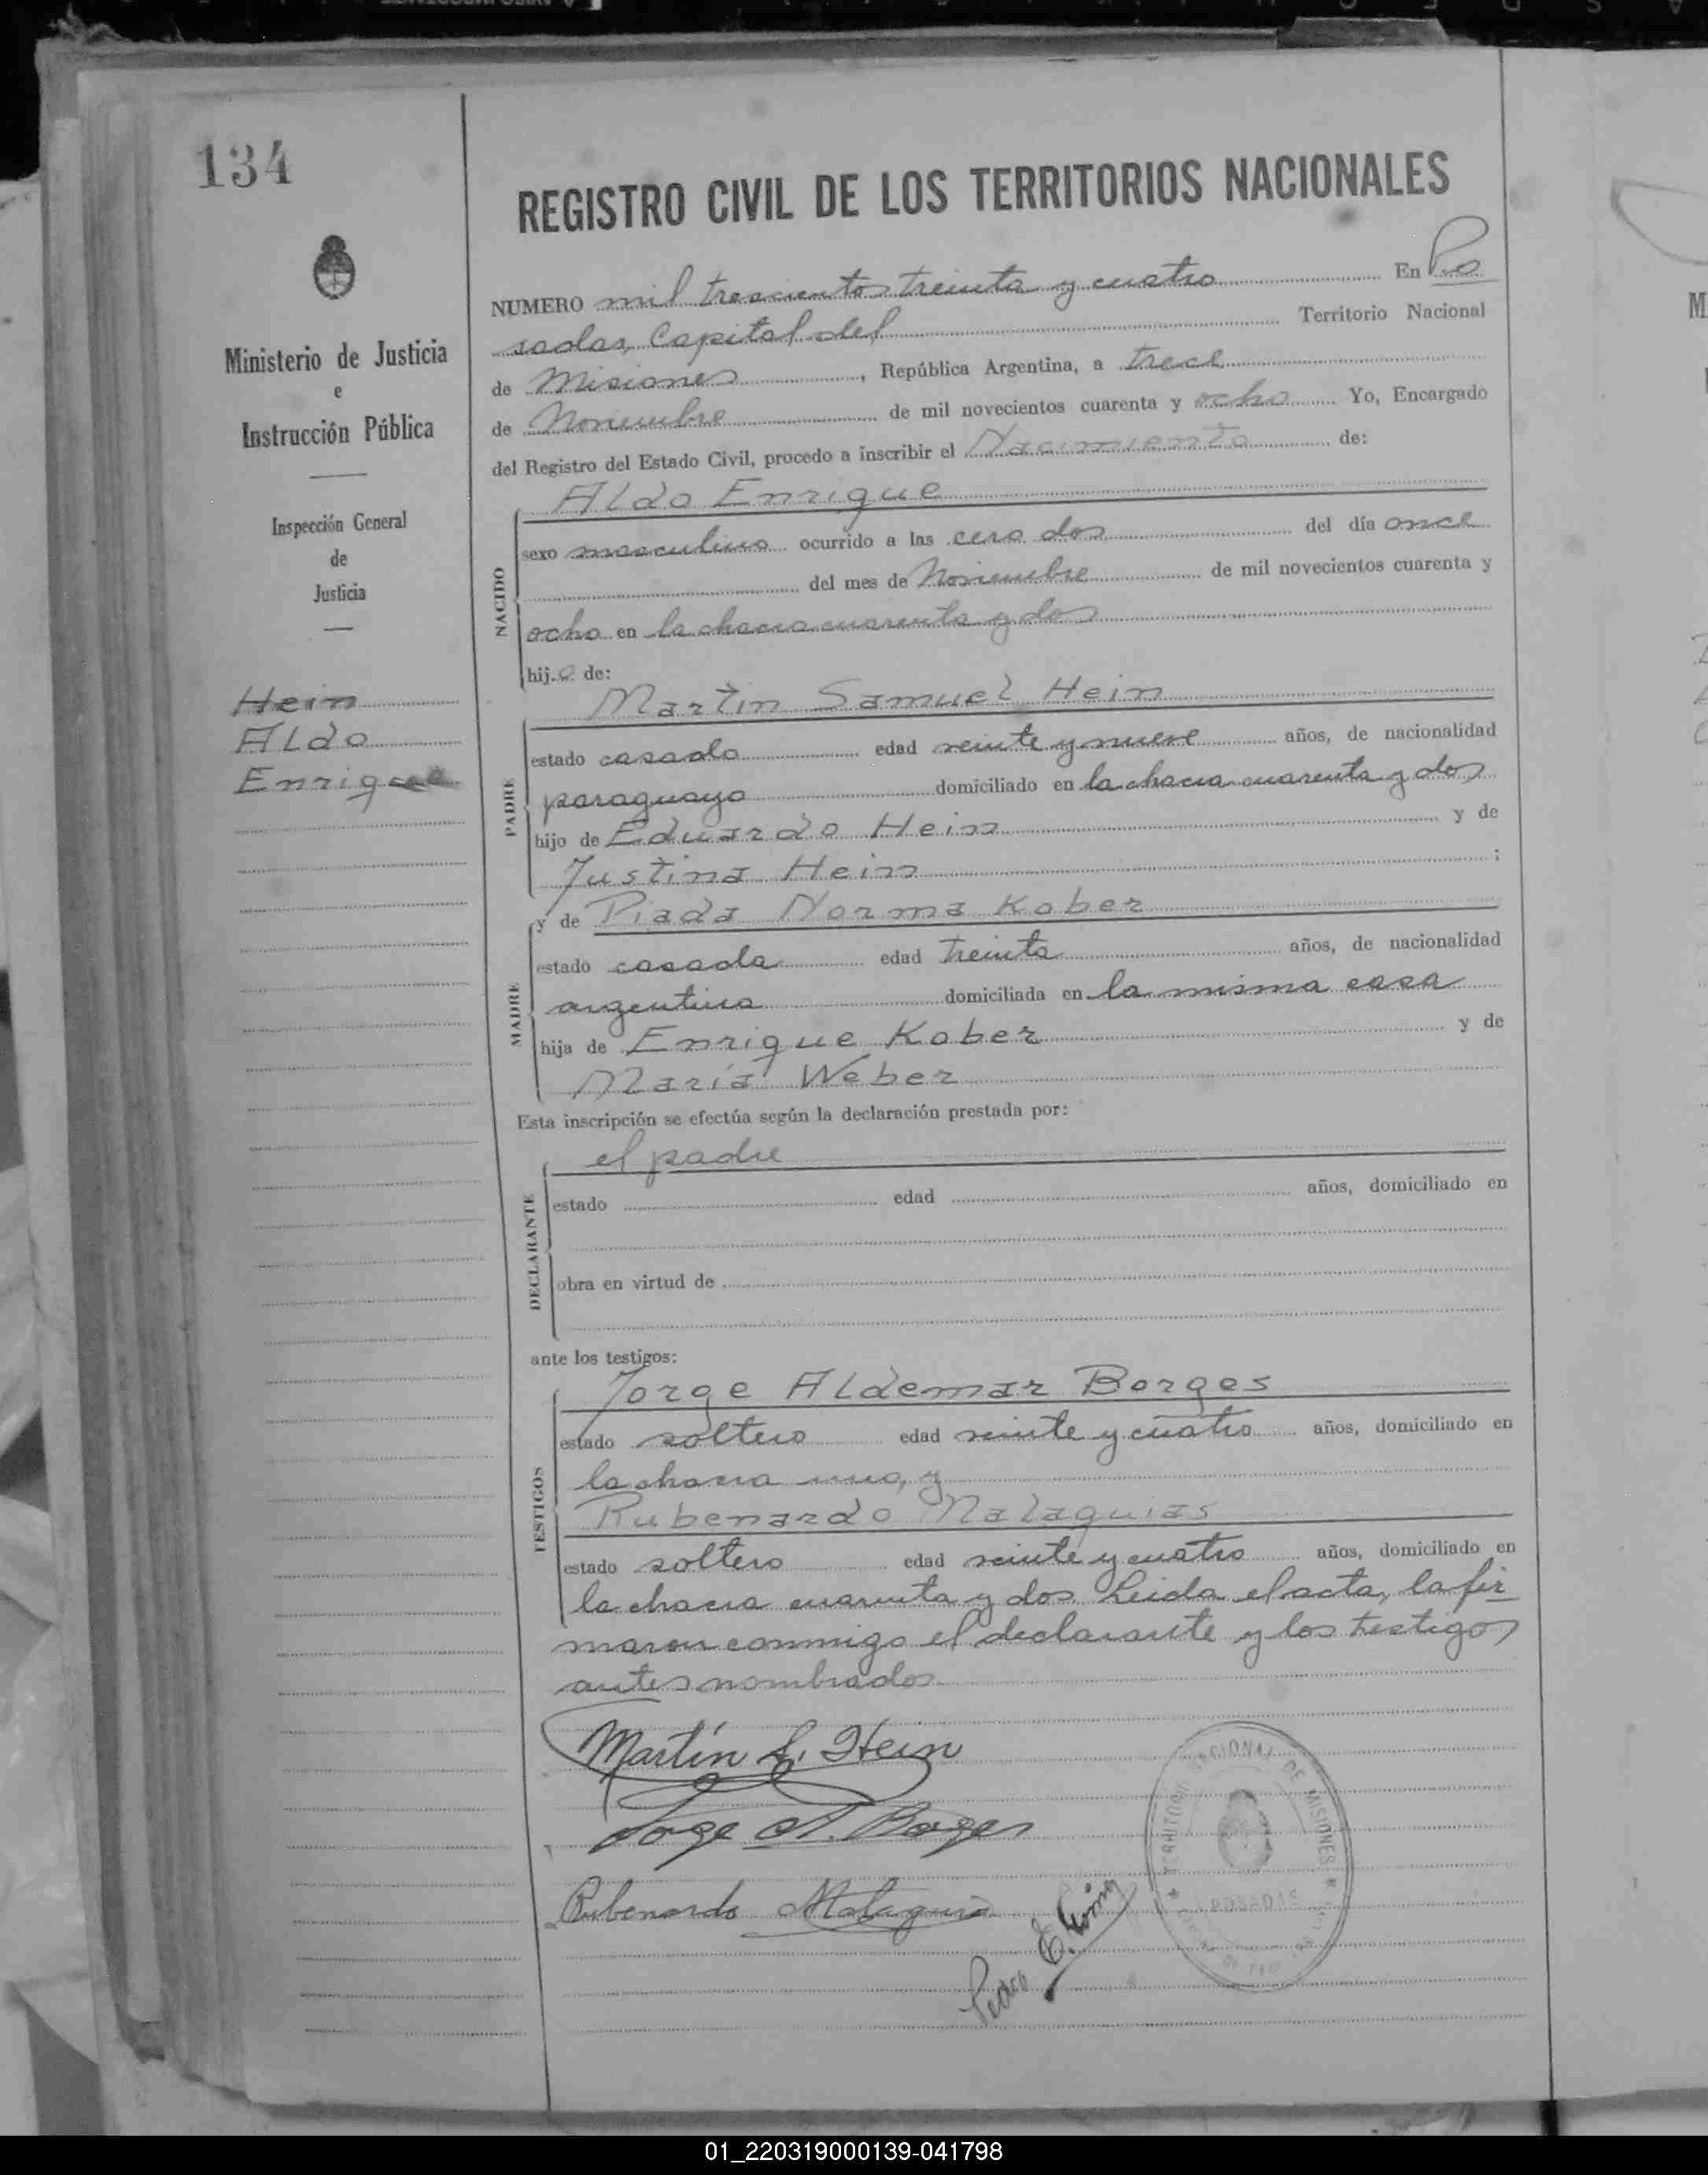 134
REGISTRO CIVIL DE LOS TERRITORIOS NACIONALES
NUMERO mil trescientos treinta y cuatro En Po
sadas, Capital del Territorio Nacional
de Misiones, República Argentina, a trece
de Noviembre de mil novecientos cuarenta y ocho Yo, Encargado
del Registro del Estado Civil, procedo a inscribir el Nacimiento de:
Ministerio de Justicia
e
Instrucción Pública
Inspección General
de
Justicia
Hein
Aldo
Enrique
NACIDO
Aldo Enrique
sexo masculino ocurrido a las cero dos del día once
del mes de Noviembre de mil novecientos cuarenta y
ocho en la chacra cuarenta y dos
hijo de:
PADRE
Martin Samuel Hein
estado casado edad veinte y nueve años, de nacionalidad
paraguayo domiciliado en la chacra cuarenta y dos
hijo de Eduardo Hein y de
Justina Hein;
MADRE
y de Piada Norma Kober
estado casada edad treinta años, de nacionalidad
argentina domiciliada en la misma casa
hija de Enrique Kober y de
María Weber
Esta inscripción se efectúa según la declaración prestada por:
DECLARANTE
el padre
estado edad años, domiciliado en
obra en virtud de
ante los testigos:
TESTIGOS
Jorge Aldemar Borges
estado soltero edad veinte y cuatro años, domiciliado en
la chacra uno, y
Rubenardo Malaquias
estado soltero edad veinte y cuatro años, domiciliado en
la chacra cuarenta y dos Leida el acta, la fir
maron conmigo el declarante y los testigos
antes nombrados
Martín S. Hein
Jorge A. Borges
Rubenardo
Pedro E.
TERRITORIO NACIONAL DE MISIONES
POSADAS
01_220319000139-041798